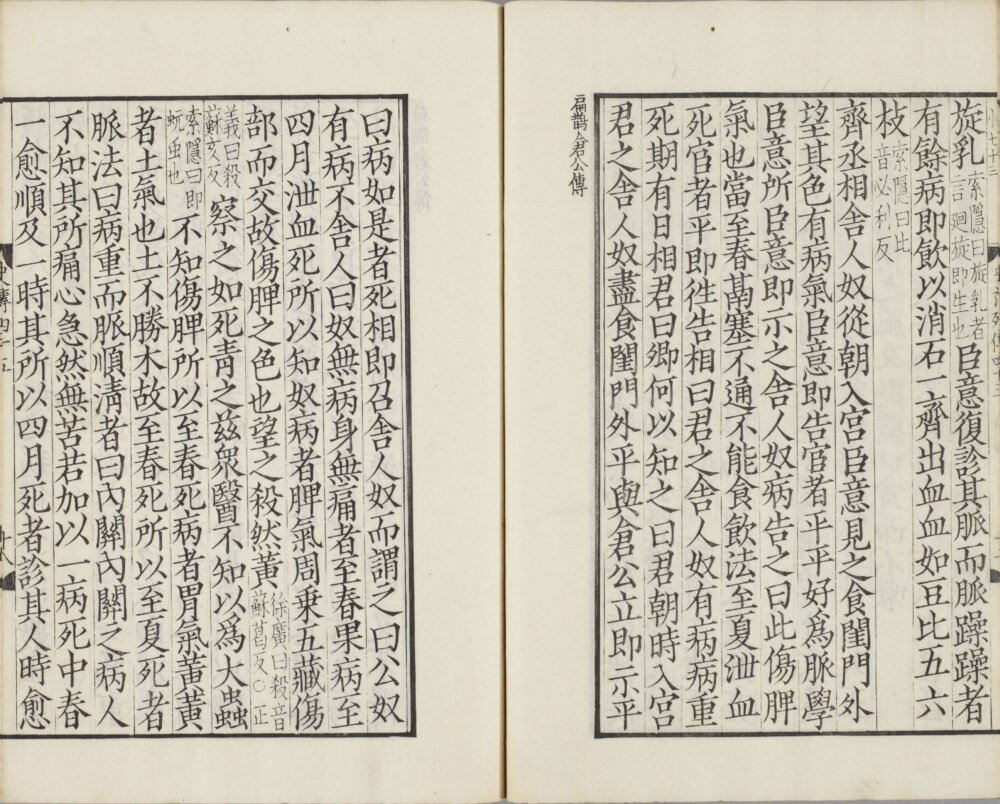 旋乳索隱曰旋乳者言迴旋即生也臣意復診其脈而脈躁躁者
有餘病即飲以消石一齊出血血如豆比五六
枚索隱曰比音必利反
齊丞相舍人奴從朝入宮臣意見之食閨門外
望其色有病氣臣意即告宦者平平好爲脈學
臣意所臣意即示之舍人奴病告之曰此傷脾
氣也當至春鬲塞不通不能食飲法至夏泄血
死宦者平即徃告相曰君之舍人奴有病病重
死期有日相君曰卿何以知之曰君朝時入宮
君之舍人奴盡食閨門外平與倉公立即示平
扁鵲倉公傳
曰病如是者死相即召舍人奴而謂之曰公奴
有病不舍人曰奴無病身無痛者至春果病至
四月泄血死所以知奴病者脾氣周乘五藏傷
部而交故傷脾之色也望之殺然黃徐廣曰殺音蘇葛反○正
義曰殺蘇亥反察之如死靑之茲衆醫不知以爲大蟲
索隱曰即蚖虫也不知傷脾所以至春死病者胃氣黃黃
者土氣也土不勝木故至春死所以至夏死者
脈法曰病重而脈順淸者曰內關內關之病人
不知其所痛心急然無苦若加以一病死中春
一愈順及一時其所以四月死者診其人時愈